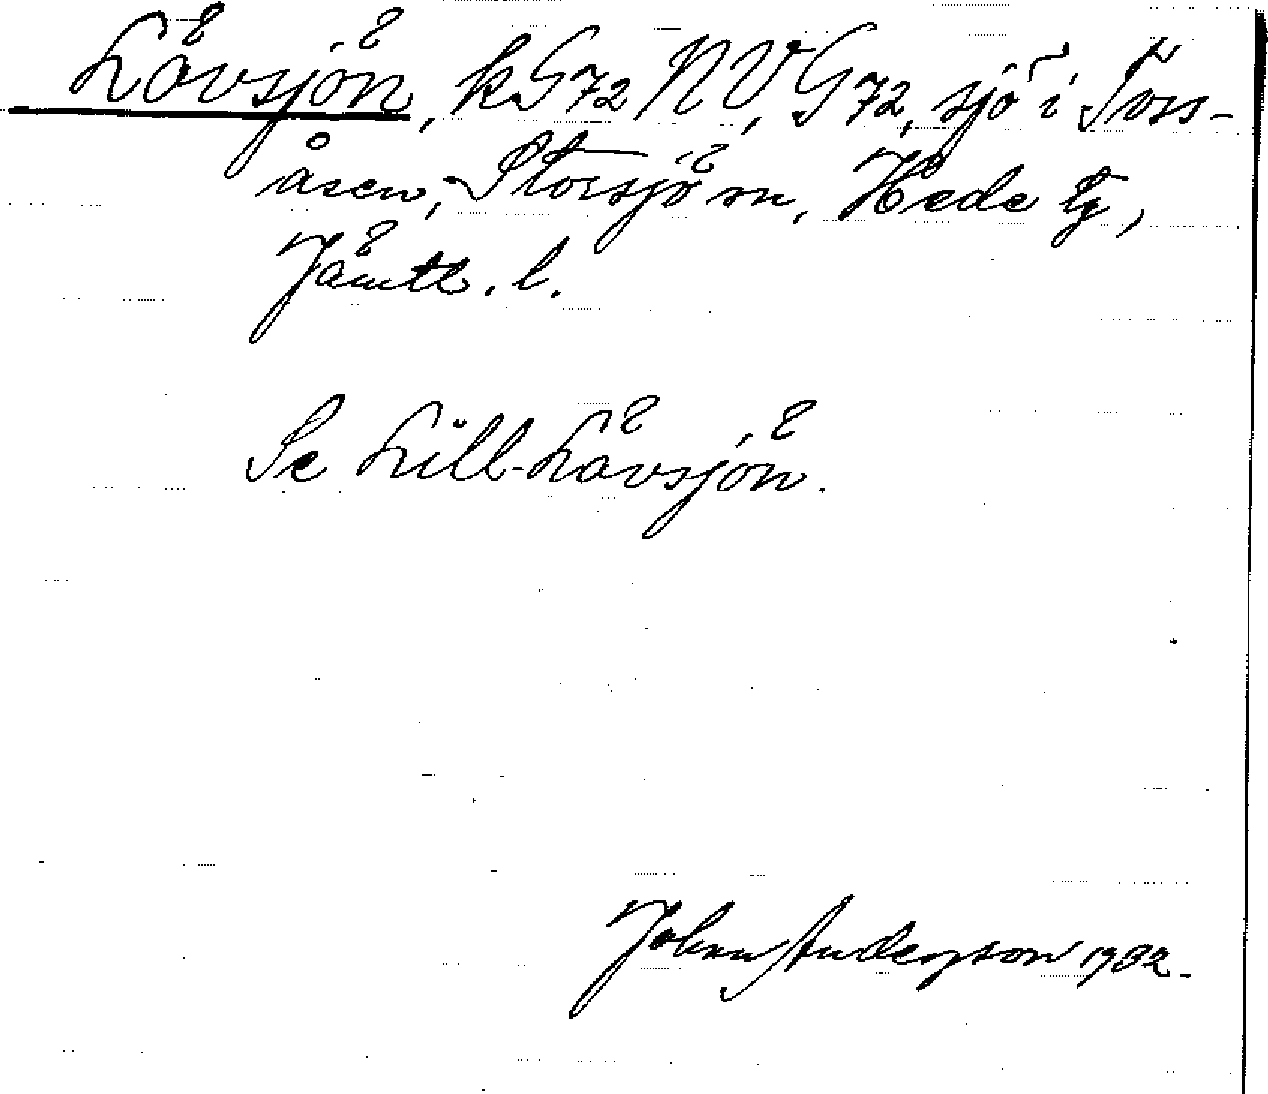 Lövsjön, kG72NV, G72, sjö i Tors-
åsen, Storsjö sn, Hede tg,
Jämtl. l.
Se Lill-Lövsjön.
Johan Anderson 1932.